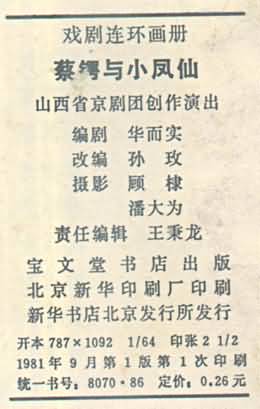 戏剧连环画册
蔡锷与小凤仙
山西省京剧团创作演出
编剧 华而实
改编 孙玫
摄影 顾棣
潘大为
责任编辑 王秉龙
宝文堂书店出版
北京新华印刷厂印刷
新华书店北京发行所发行
开本 787×1092 1/64 印张 2 1/2
1981年9月第1版第1次印刷
统一书号：8070·86 定价：0.26元